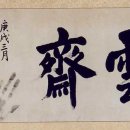 雲齋
庚戌三月